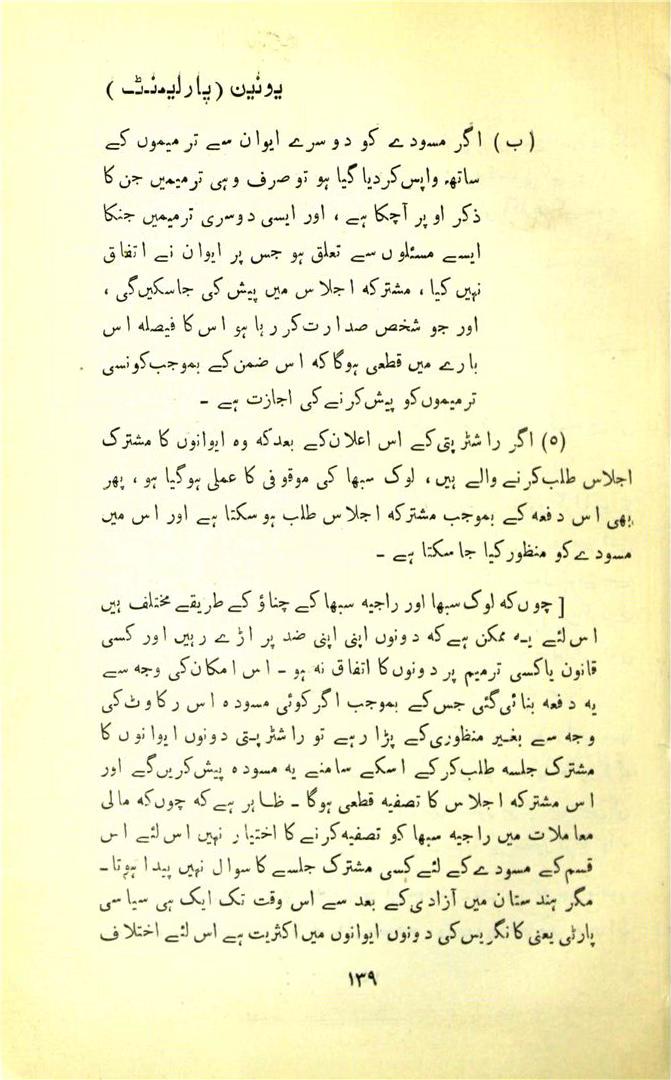 یونین (پارلیمنٹ)
(ب) اگر مسودے کو دوسرے ایوان سے ترمیموں کے
ساتھ واپس کردیا گیا ہو تو صرف وہی ترمیمیں جن کا
ذکر اوپر آچکا ہے ، اور ایسی دوسری ترمیمیں جنکا
ایسے مسئلوں سے تعلق ہو جس پر ایوان نے اتفاق
نہیں کیا ، مشترکہ اجلاس میں پیش کی جاسکیں گی ،
اور جو شخص صدارت کر رہا ہو اس کا فیصلہ اس
بارے میں قطعی ہوگا کہ اس ضمن کے بموجب کونسی
ترمیموں کو پیش کرنے کی اجازت ہے ۔
(۵) اگر راشٹرپتی کے اس اعلان کے بعد کہ وہ ایوانوں کا مشترک
اجلاس طلب کرنے والے ہیں ، لوک سبھا کی موقوفی کا عملی ہوگیا ہو ، پھر
بھی اس دفعہ کے بموجب مشترکہ اجلاس طلب ہوسکتا ہے اور اس میں
مسودے کو منظور کیا جا سکتا ہے ۔
[ چوں کہ لوک سبھا اور راجیہ سبھا کے چناؤ کے طریقے مختلف ہیں
اس لئے یہ ممکن ہے کہ دونوں اپنی اپنی ضد پر اڑے رہیں اور کسی
قانون یا کسی ترمیم پر دونوں کا اتفاق نہ ہو ۔ اس امکان کی وجہ سے
یہ دفعہ بنائی گئی جس کے بموجب اگر کوئی مسودہ اس رکاوٹ کی
وجہ سے بغیر منظوری کے پڑا رہے تو راشٹرپتی دونوں ایوانوں کا
مشترک جلسہ طلب کرکے اسکے سامنے یہ مسودہ پیش کریں گے اور
اس مشترکہ اجلاس کا تصفیہ قطعی ہوگا ۔ ظاہر ہے کہ چوں کہ مالی
معاملات میں راجیہ سبھا کو تصفیہ کرنے کا اختیار نہیں اس لئے اس
قسم کے مسودے کے لئے کسی مشترک جلسے کا سوال نہیں پیدا ہوتا ۔
مگر ہندستان میں آزادی کے بعد سے اس وقت تک ایک ہی سیاسی
پارٹی یعنی کانگریس کی دونوں ایوانوں میں اکثریت ہے اس لئے اختلاف
۱۳۹